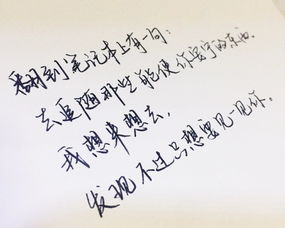 翻到笔记本上有句：
去追随那些能使你安宁的东西。
我想来想去，
发现不过只想要见一见你。